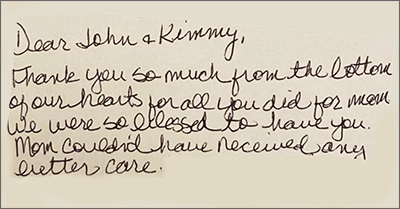 Dear John & Kimmy,
Thank you so much from the bottom
of our hearts for all you did for mom
we were so blessed to have you.
Mom couldn't have received any
better care.